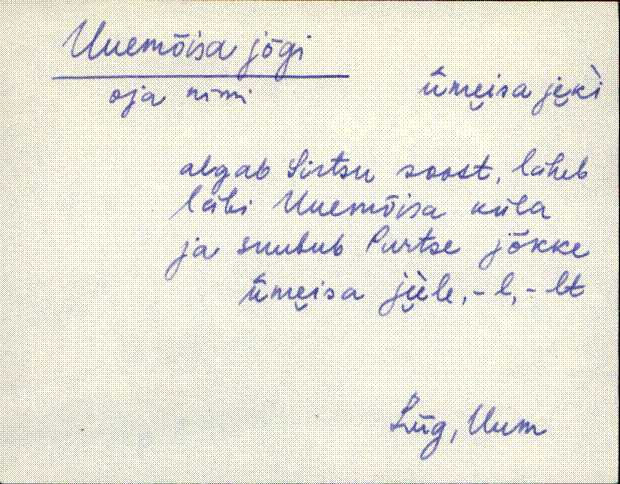 Uuemõisa jõgi
oja nimi
ūmęisa ję̮kì
algab Sirtsu soost, läheb
läbi Uuemõisa küla
ja suubub Purtse jõkke
ūmęisa ję̀le, -l, -lt
Lüg, Uum